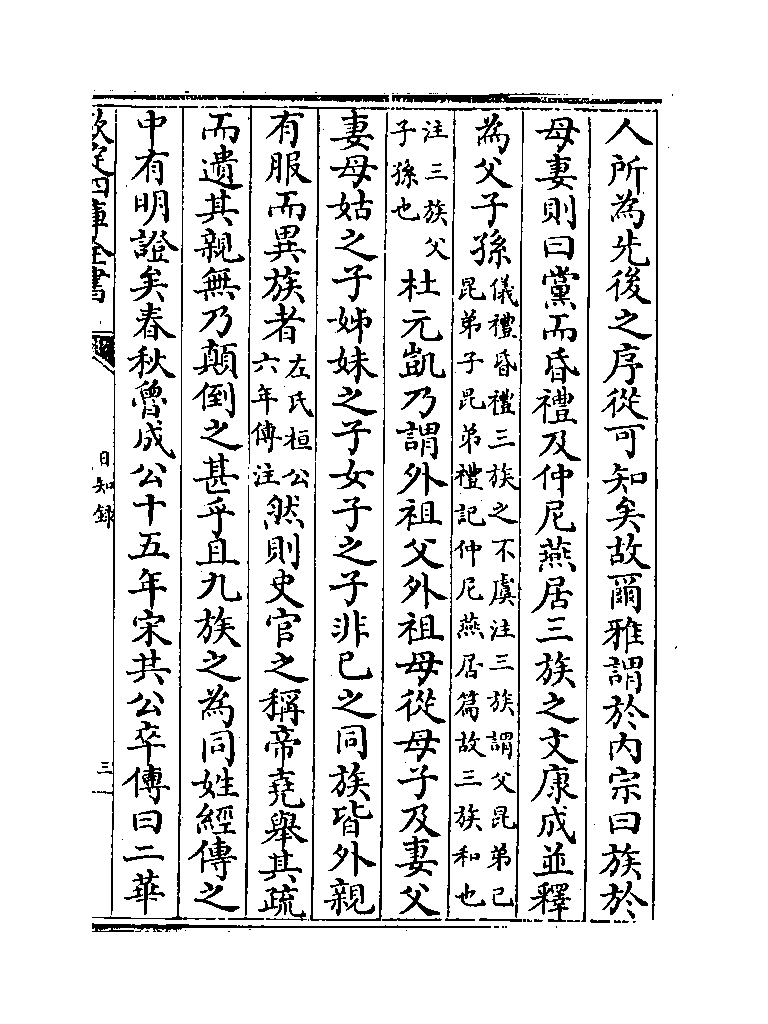 人所為先後之序從可知矣故爾雅謂於內宗曰族於
母妻則曰黨而昏禮及仲尼燕居三族之文康成並釋
為父子孫儀禮昏禮三族之不虞注三族謂父昆弟己
昆弟子昆弟禮記仲尼燕居篇故三族和也
注三族父
子孫也杜元凱乃謂外祖父外祖母從母子及妻父
妻母姑之子姊妹之子女子之子非己之同族皆外親
有服而異族者左氏桓公
六年傳注然則史官之稱帝堯舉其疏
而遺其親無乃顛倒之甚乎且九族之為同姓經傳之
中有明證矣春秋魯成公十五年宋共公卒傳曰二華
欽定四庫全書
日知録
三